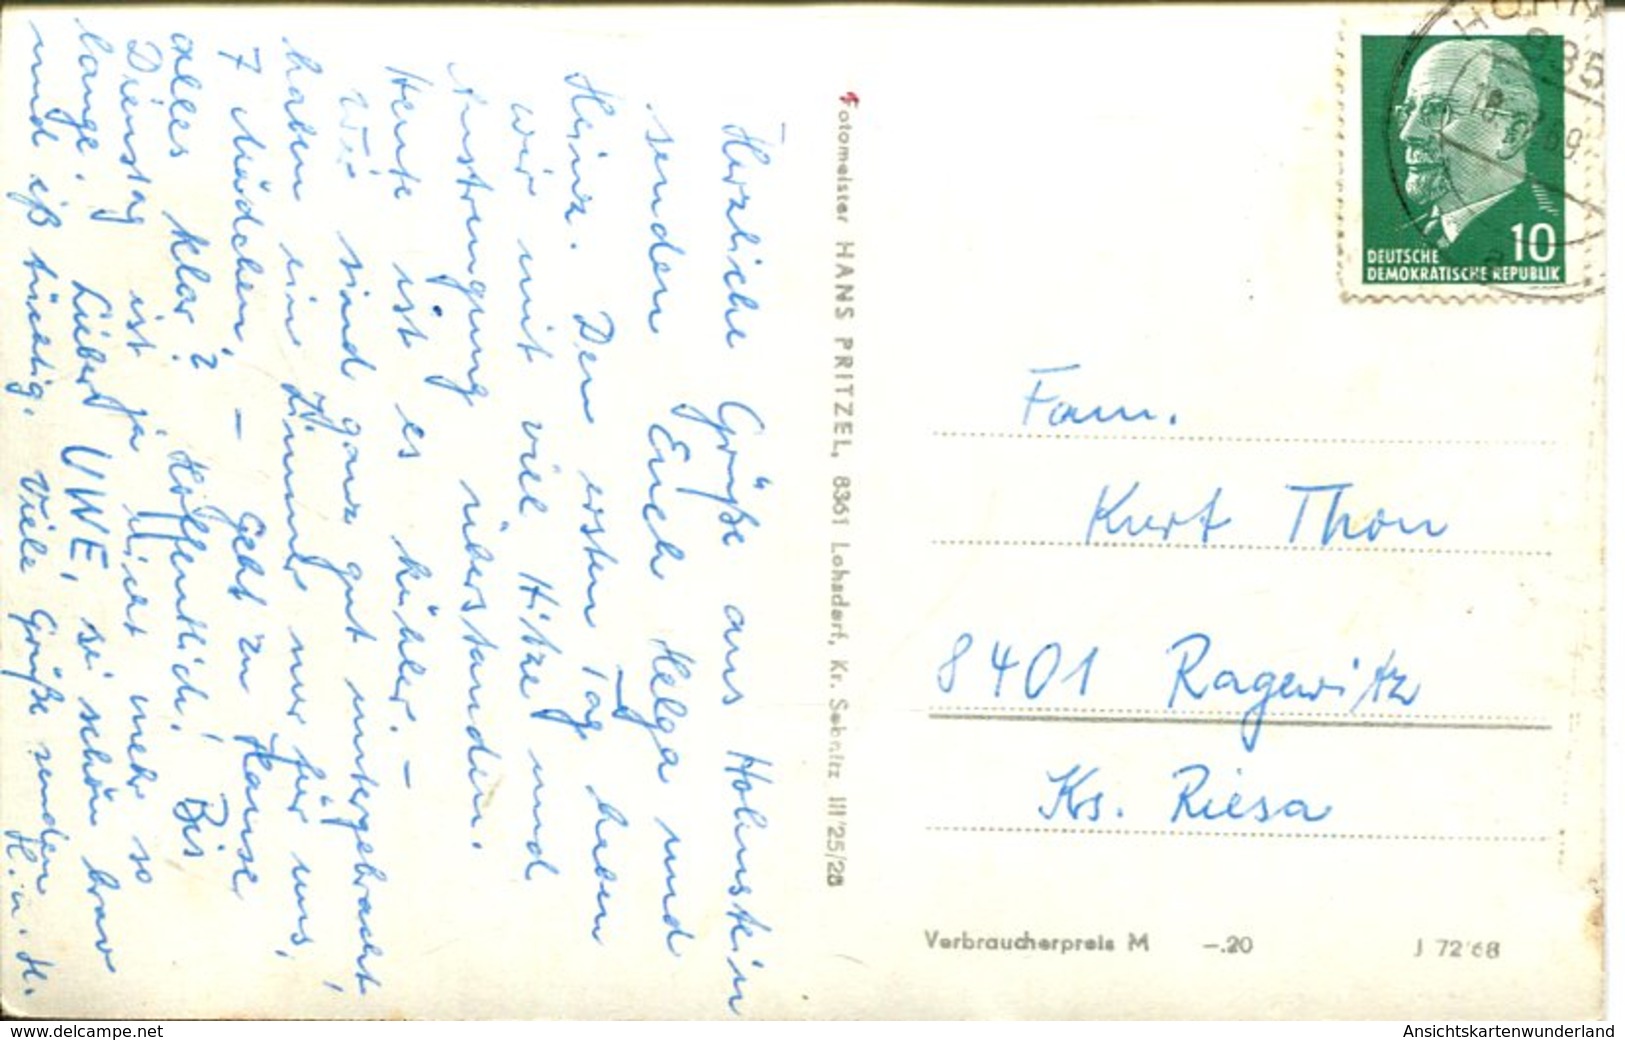 Herzliche Grüße aus Hohnstein
senden Euch Helga und
Heinz. Den ersten Tag haben
wir mit viel Hitze und
Anstrengung überstanden.
Heute ist es kühler. –
Wir sind ganz gut untergebracht,
haben ein Zimmer nur für uns,
7 Mädchen. – Geht zu Hause
alles klar? Hoffentlich! Bis
Dienstag ist ja nicht mehr so
lange. Lieber UWE, sei schön brav
und iß tüchtig. Viele Grüße senden
H. u. H.
Fotomeister HANS PRITZEL, 8361 Lohsdorf, Kr. Sebnitz III/25/28
DEUTSCHE
DEMOKRATISCHE REPUBLIK
10
Fam.
Kurt Thon
8401 Ragewitz
Krs. Riesa
Verbraucherpreis M –.20
J 72/68
www.delcampe.net
Ansichtskartenwunderland